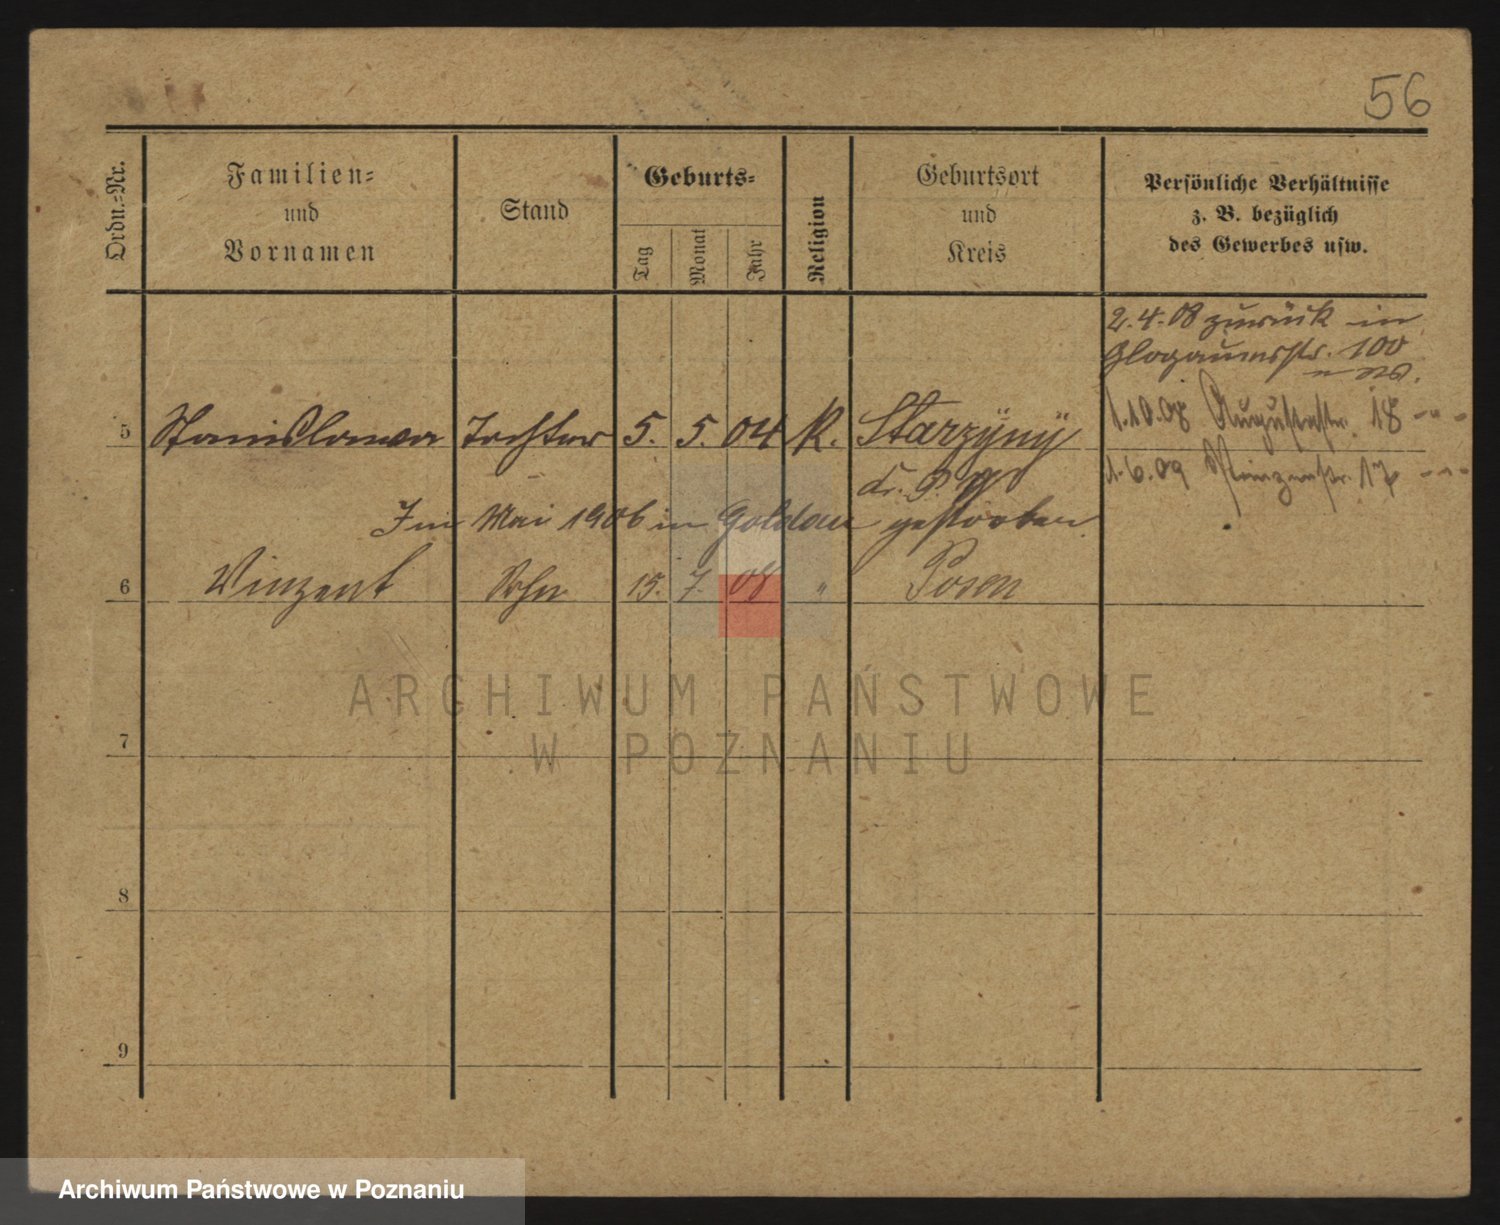 56
Ordn.-Nr.
Familien-
und
Vornamen
Stand
Geburts-
Tag
Monat
Jahr
Religion
Geburtsort
und
Kreis
Persönliche Verhältnisse
z. B. bezüglich
des Gewerbes usw.
2.4.08 zurück in
Glogauerstr. 100
5 Stanislawa Tochter 5. 5. 04 K. Starzÿnÿ
1.10.08 Augustastr. 18
1.6.09 Prinzenstr. 17
Im Mai 1906 in Goldau gestorben.
6 Vinzent Sohn 15. 7. 08 " Posen
7
8
9
ARCHIWUM PAŃSTWOWE
W POZNANIU
Archiwum Państwowe w Poznaniu